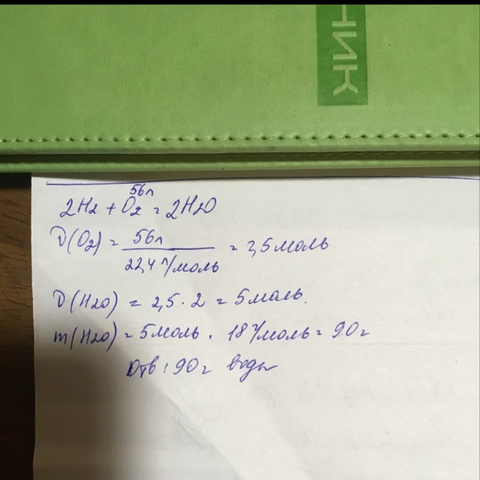 НИК
56л
2H₂ + O₂ = 2H₂O
ν(O₂) = 56л / 22,4 л/моль = 2,5 моль
ν(H₂O) = 2,5 · 2 = 5 моль.
m(H₂O) = 5 моль · 18 г/моль = 90 г
Отв: 90 г воды